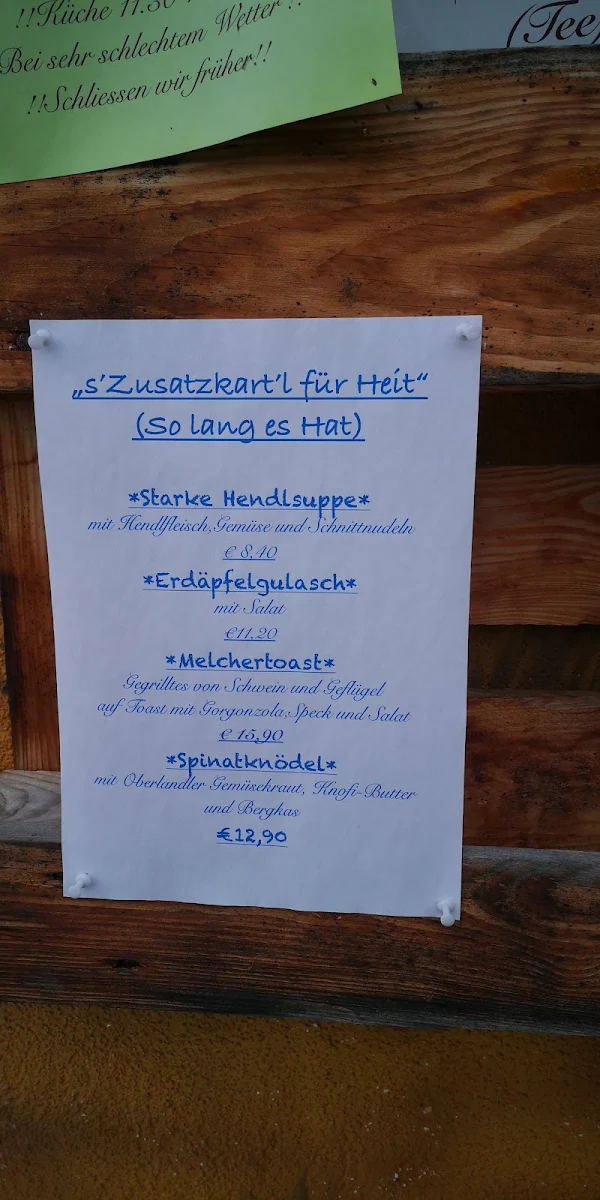 !!Küche 11.30
Bei sehr schlechtem Wetter !!
!!Schliessen wir früher!!
(Tee
„s'Zusatzkart'l für Heit“
(So lang es Hat)
*Starke Hendlsuppe*
mit Hendlfleisch,Gemüse und Schnittnudeln
€ 8,40
*Erdäpfelgulasch*
mit Salat
€11,20
*Melchertoast*
Gegrilltes von Schwein und Geflügel
auf Toast mit Gorgonzola,Speck und Salat
€ 15,90
*Spinatknödel*
mit Oberlandler Gemüsekraut, Knofi-Butter
und Bergkas
€12,90